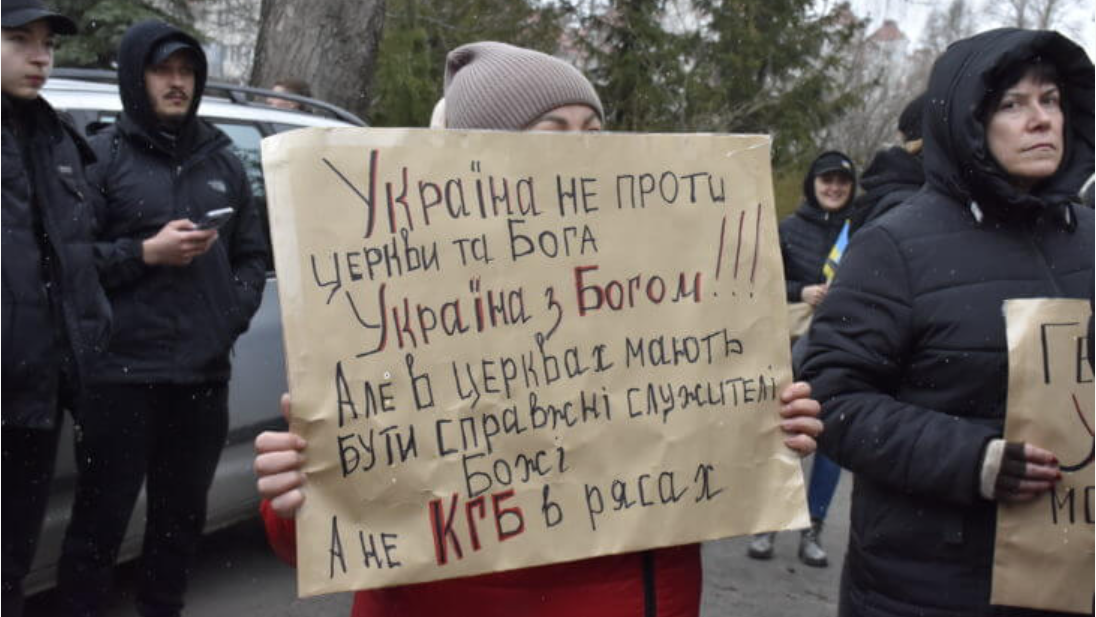 Україна не проти
церкви та Бога
Україна з Богом!!!
Але в церквах мають
бути справжні служителі
Божі
А не КГБ в рясах